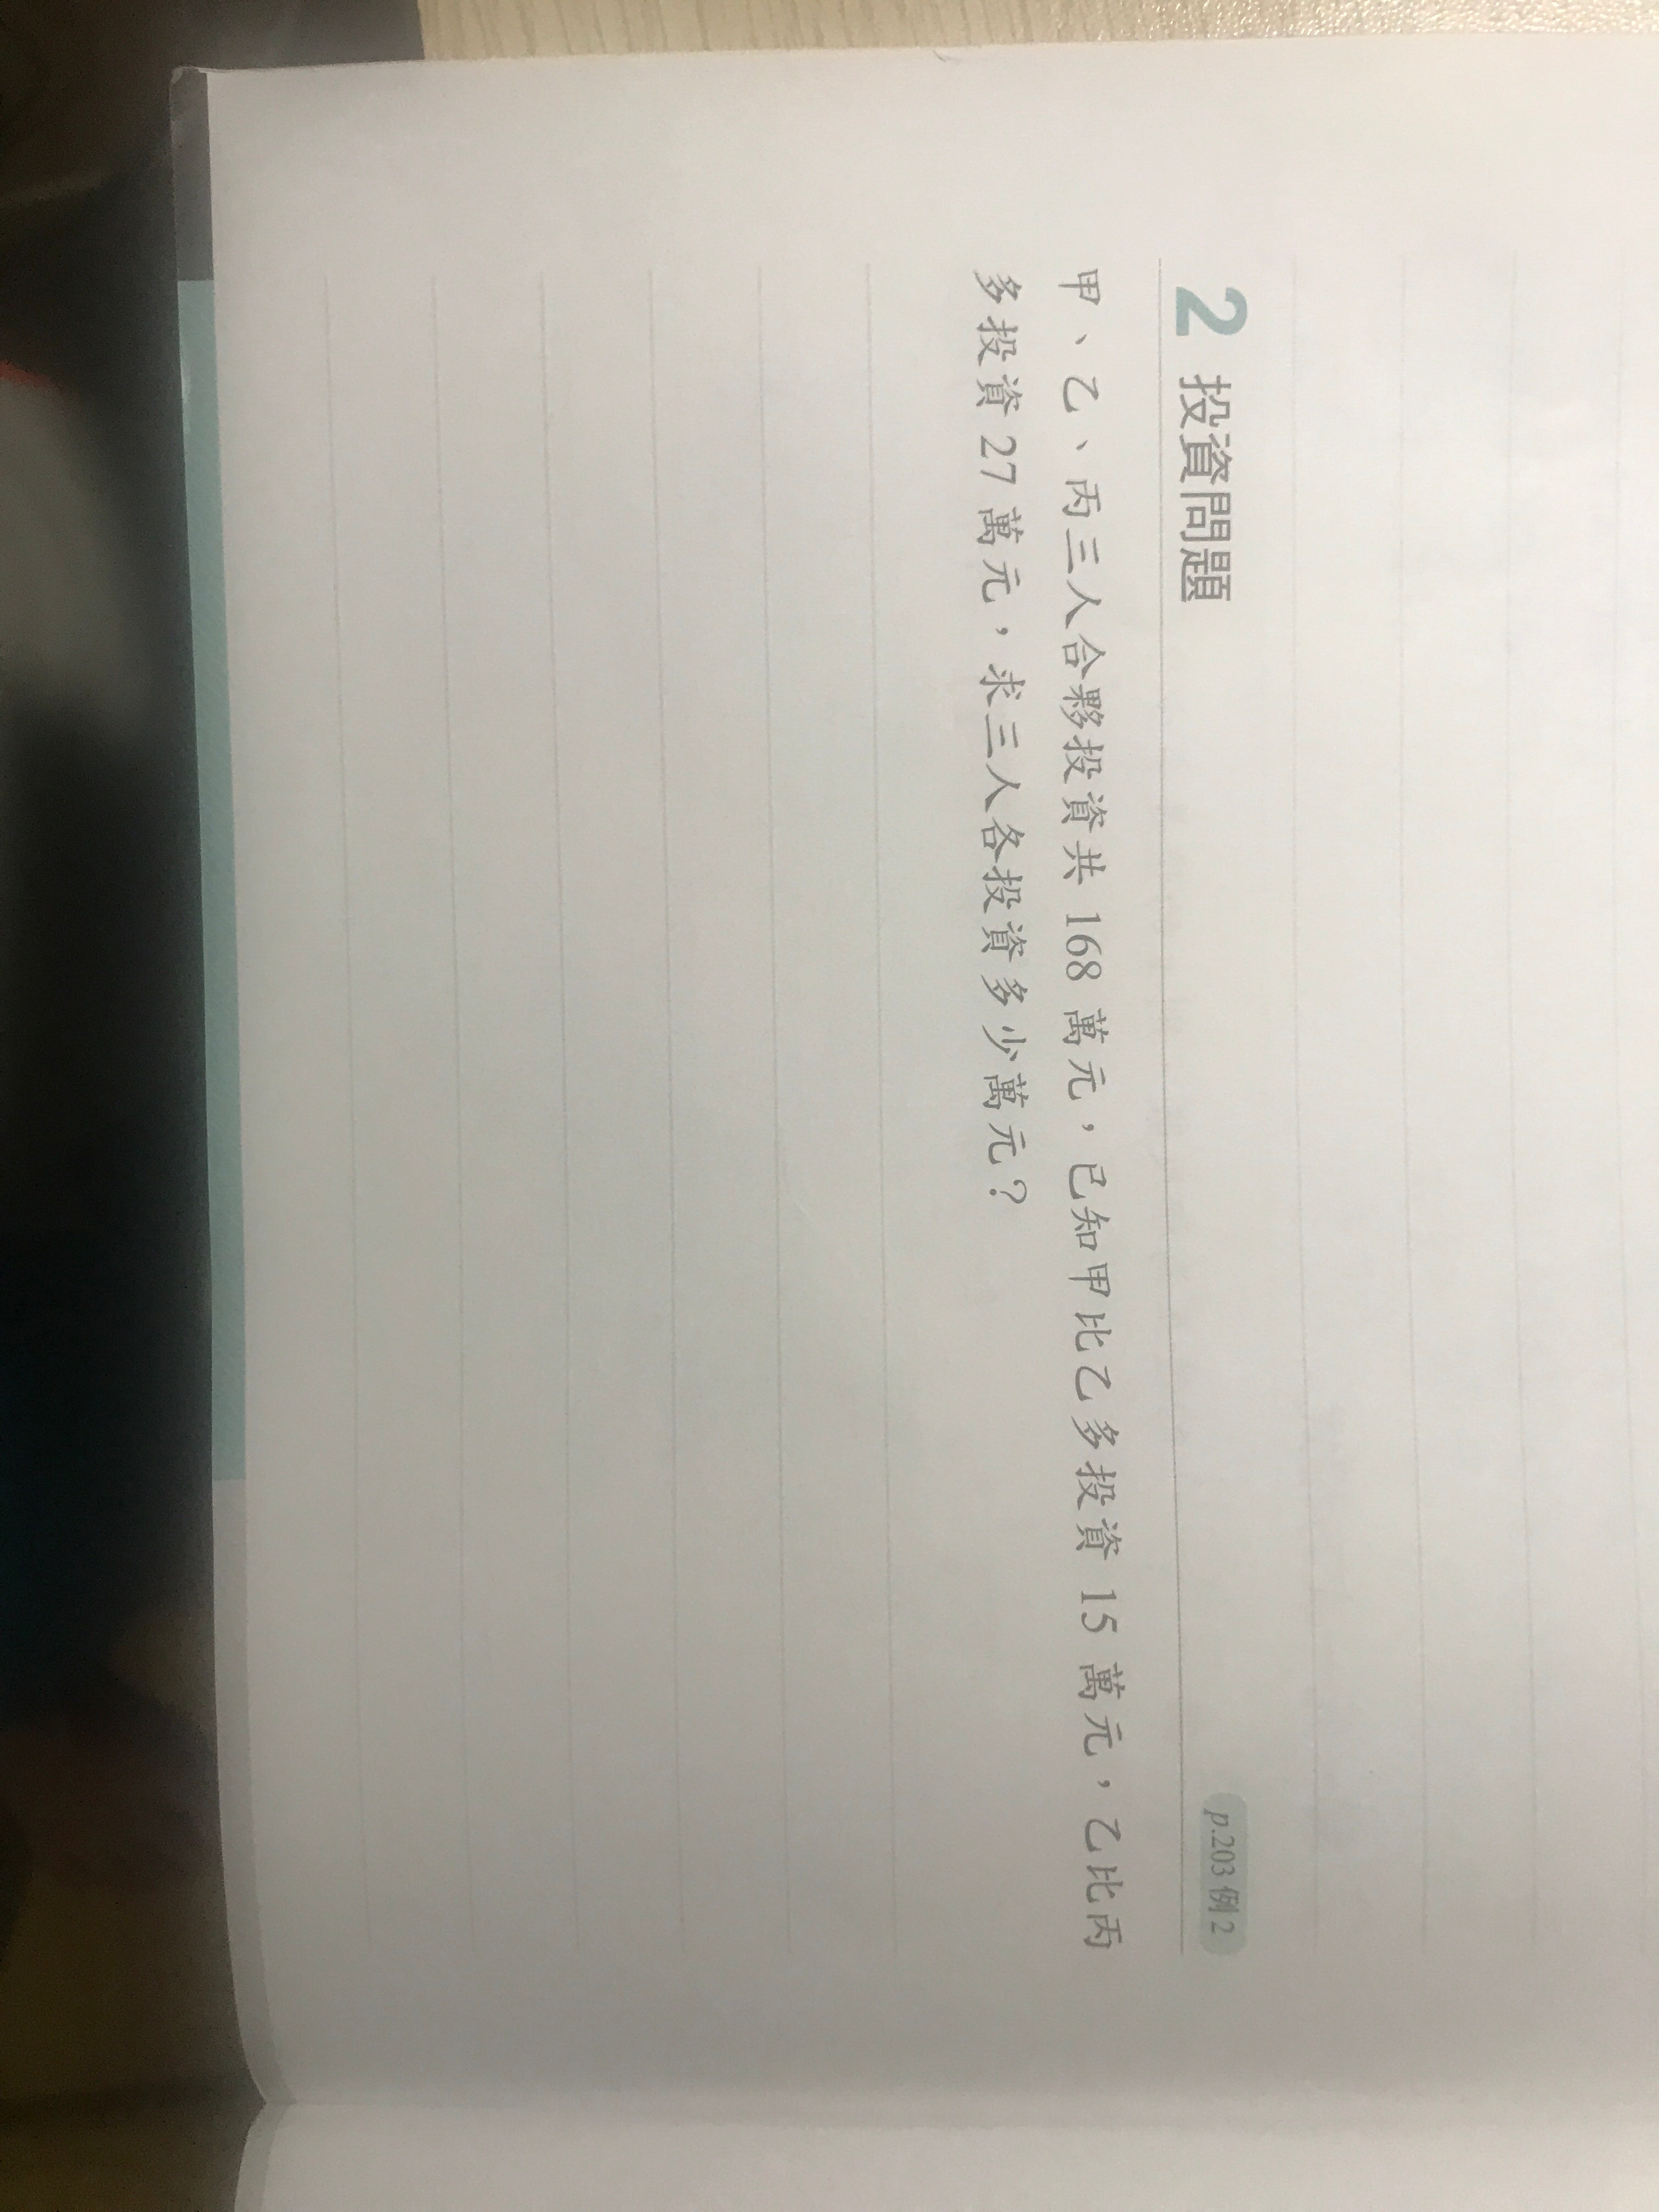 2 投資問題 p.203 例 2
甲、乙、丙三人合夥投資共 168 萬元，已知甲比乙多投資 15 萬元，乙比丙
多投資 27 萬元，求三人各投資多少萬元？